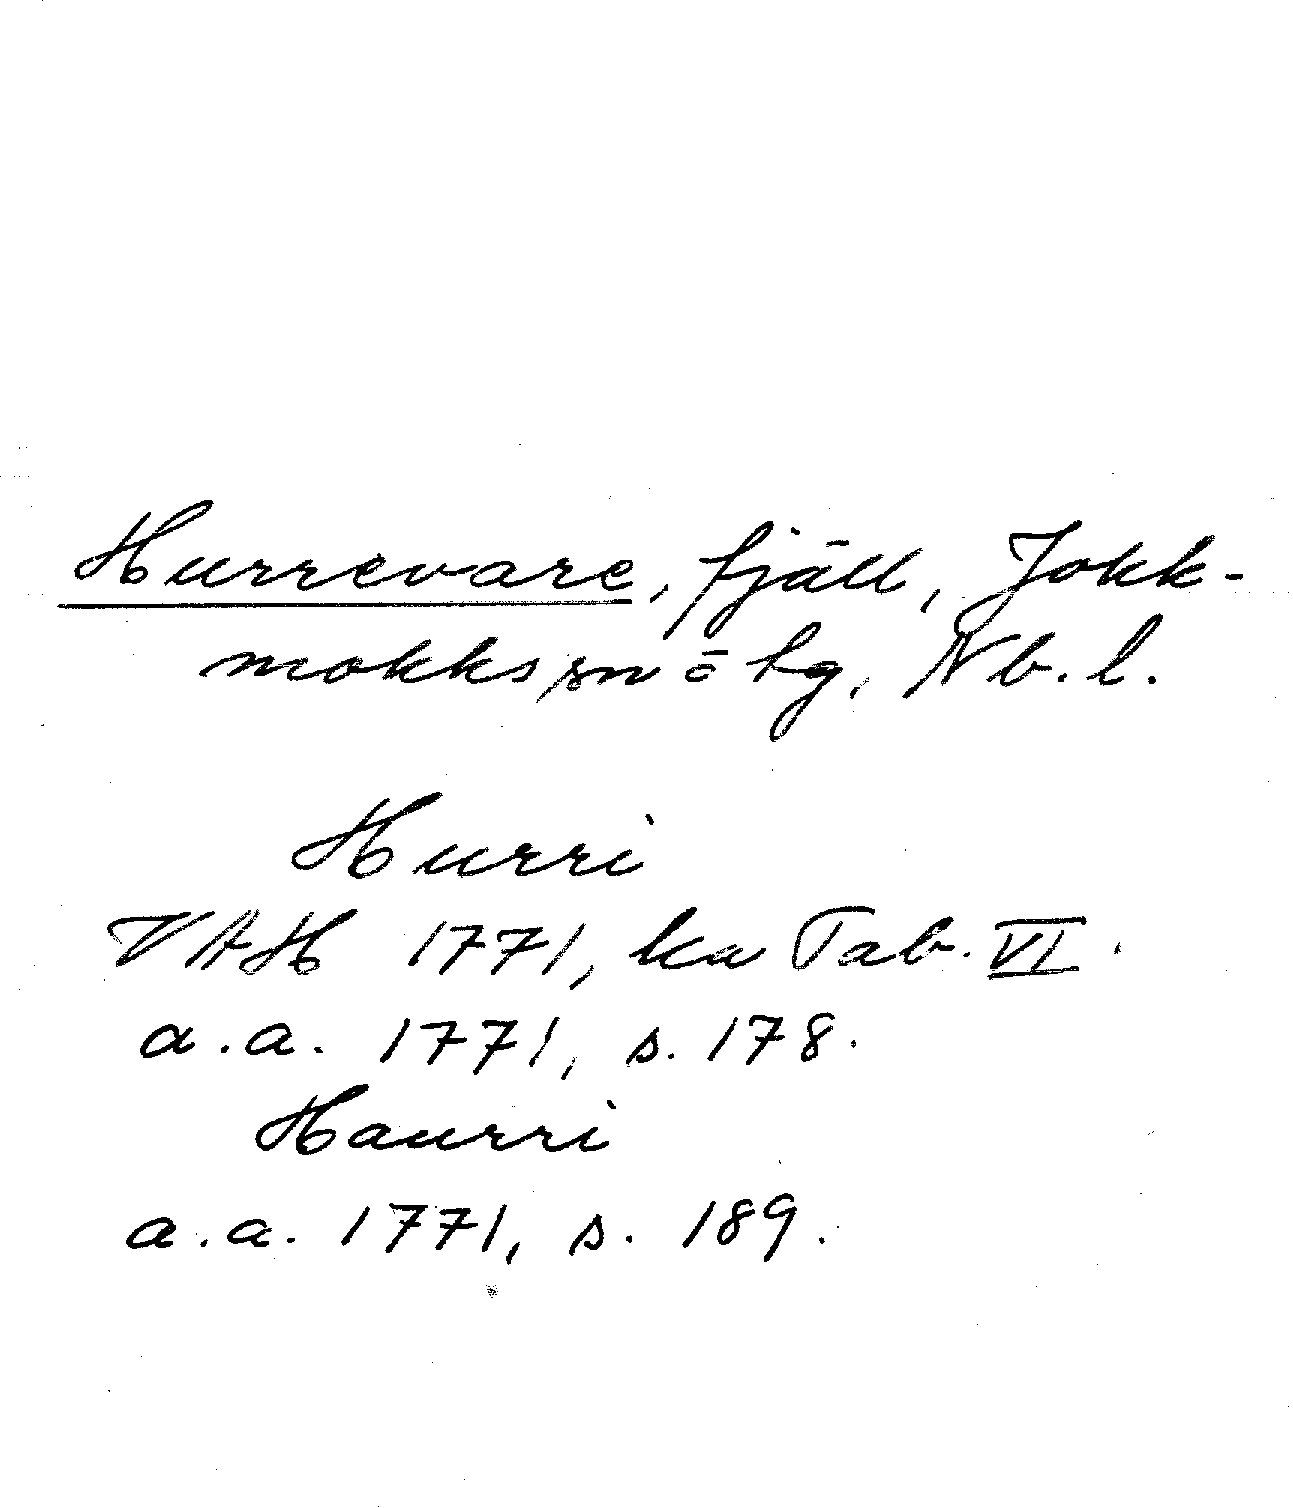 Hurrevare, fjäll, Jokk-
mokks sn ö lg, Nb. l.
Hurri
VAH 1771, ka Tab. VI.
a.a. 1771, s. 178.
Haurri
a.a. 1771, s. 189.